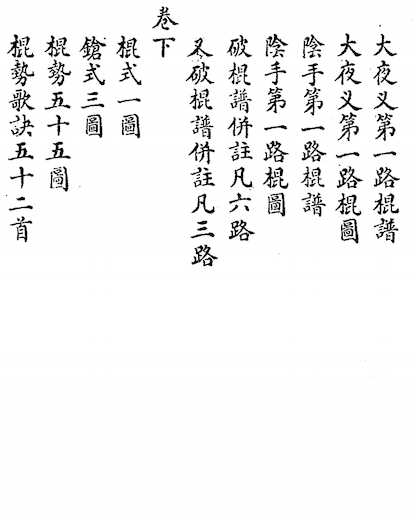 大夜叉第一路棍譜
大夜叉第一路棍圖
陰手第一路棍譜
陰手第一路棍圖
破棍譜併註凡六路
又破棍譜併註凡三路
卷下
棍式一圖
鎗式三圖
棍勢五十五圖
棍勢歌訣五十二首